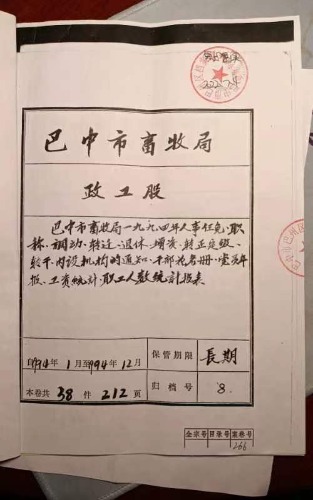 巴中市畜牧局
政工股
巴中市畜牧局一九九四年人事任免、职
称、调动、转正、退休、增资、转正定级、
内设机构的通知、干部花名册、
报、工资统计、职工人数统计报表
自1994年1月至1994年12月
保管期限
長期
本卷共38件212页
归档号
8
全宗号
目录号
案卷号
266